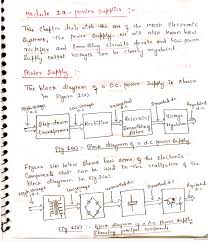 Module 1a - power supplies :-
This chapter deals with the use of the most Electronic
Systems, the power supply. We will also know how
rectifier and Smoothing circuits operate and how power
Supply output voltages can be closely regulated.
Power Supply :-
The block diagram of a D.C. power supply is shown
in Figure 1(a)
High voltage
Low voltage
Unsmoothed d.c
Smoothed d.c
Regulated
d.c
Step-down
Transformer
Rectifier
Reservoir
Smoothing
filter
Voltage
Regulator
Fig 1(a) :- Block diagram of a dc power supply
Figure 1(b) below shows how some of the electronic
Components that can be used in the realization of the
block diagram in Fig 1(a)
Fig 1(b) :- Block diagram of a d.c power supply
Showing principal components